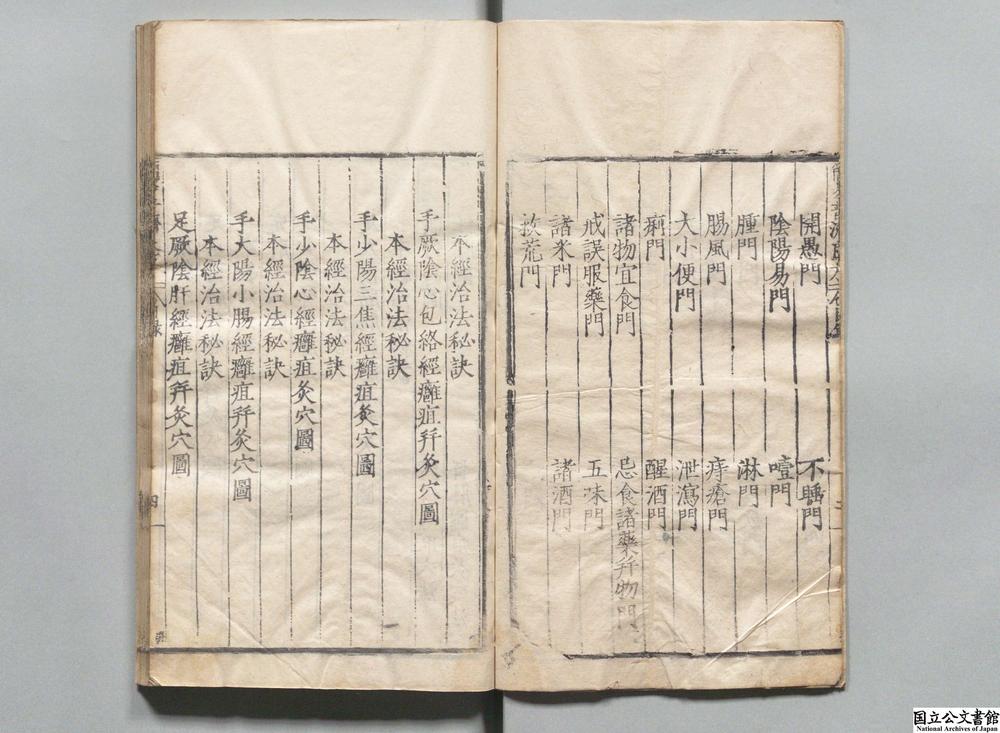 開愚門 不𥈭門
陰陽易門 噎門
腫門 淋門
腸風門 痔瘡門
大小便門 泄瀉門
痢門 醒酒門
諸物宜食門 忌食諸藥并物門
戒誤服藥門 五味門
諸米門 諸酒門
救荒門
本經治法秘訣
手厥陰心包絡經癰疽并灸穴圖
本經治法秘訣
手少陽三焦經癰疽灸穴圖
本經治法秘訣
手少陰心經癰疽灸穴圖
本經治法秘訣
手太陽小腸經癰疽并灸穴圖
本經治法秘訣
足厥陰肝經癰疽并灸穴圖
四
国立公文書館
National Archives of Japan